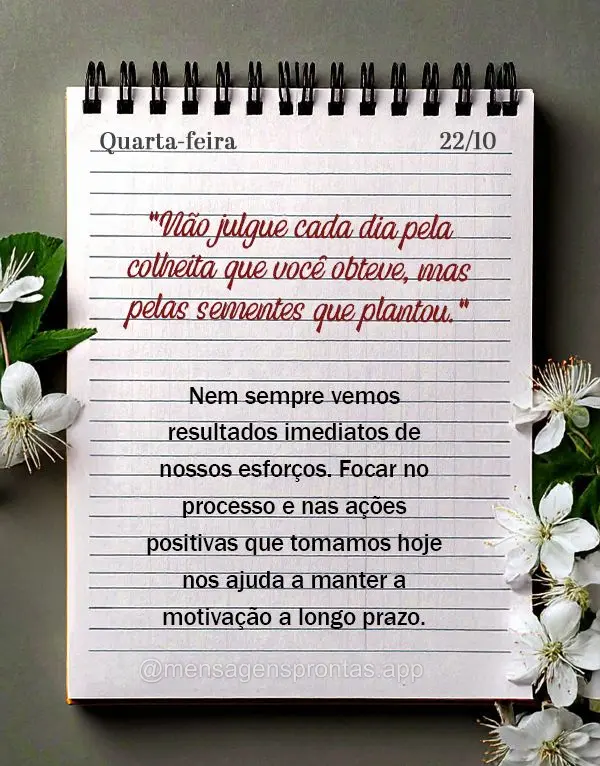 Quarta-feira 22/10
"Não julgue cada dia pela
colheita que você obteve, mas
pelas sementes que plantou."
Nem sempre vemos
resultados imediatos de
nossos esforços. Focar no
processo e nas ações
positivas que tomamos hoje
nos ajuda a manter a
motivação a longo prazo.
@mensagensprontas.app